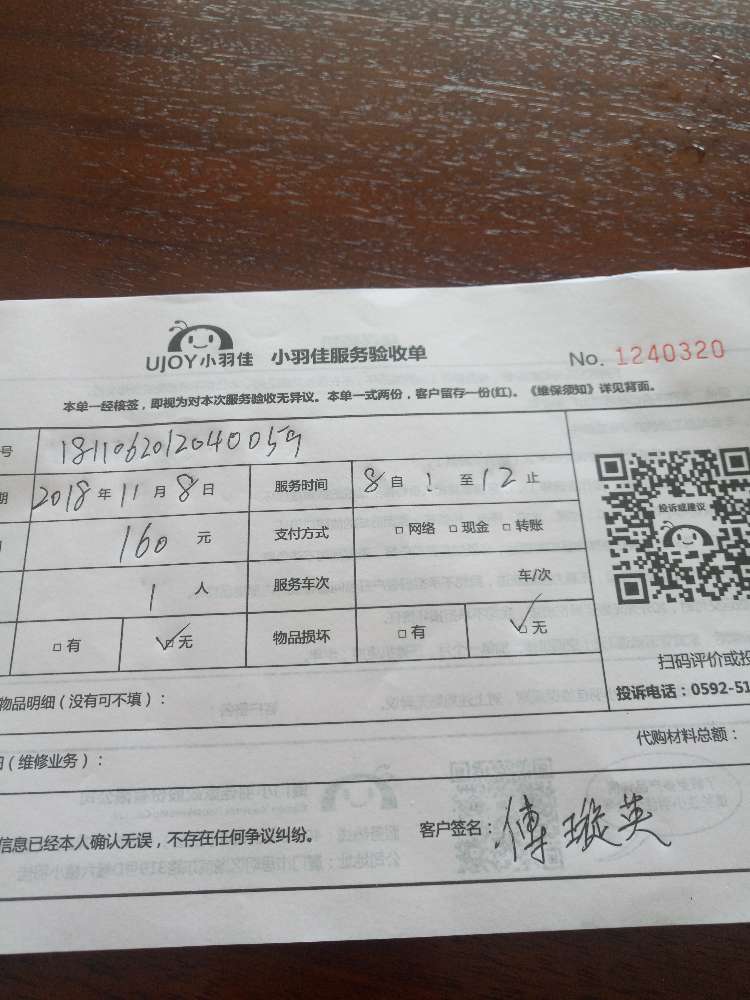 UJOY小羽佳 小羽佳服务验收单 No. 1240320
本单一经核签，即视为对本次服务验收无异议。本单一式两份，客户留存一份(红)。《维保须知》详见背面。
号 181106201204005
期 2018年11月8日 服务时间 8自:至12止
160元 支付方式 □网络 □现金 □转账
投诉或建议
1人 服务车次 车/次
□有 ☑无 物品损坏 □有 ☑无
扫码评价或投
物品明细（没有可不填）：
投诉电话：0592-51
（维修业务）： 代购材料总额：
信息已经本人确认无误，不存在任何争议纠纷。 客户签名：傅璇英